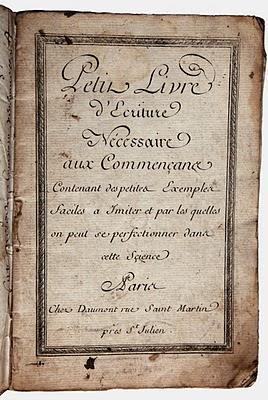 Petit Livre
d'Ecriture
Nécessaire
aux Commençans
Contenant des petites Exemples
Faciles a Imiter et par les quelles
on peut se perfectionner dans
cette Sçience
Paris
Chez Daumont rue Saint Martin
près St. Julien.